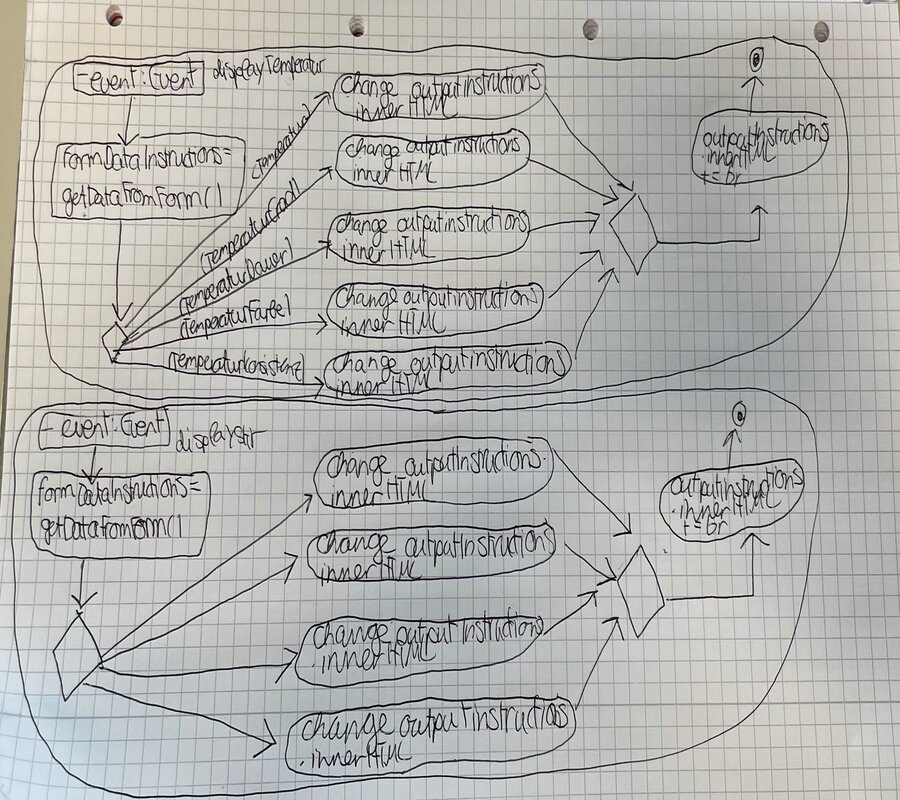 - event: Event
displayTemperatur
formDataInstructions =
getDataFromForm()
(Temperatur)
(TemperaturGrad)
(TemperaturDauer)
(TemperaturFarbe)
change outputinstructions
.innerHTML
change outputinstructions
innerHTML
change outputinstructions
innerHTML
change outputinstructions
innerHTML
change outputinstructions
innerHTML
outputInstructions
.innerHTML
+= br
- event: Event
formDataInstructions =
getDataFromForm()
change outputInstructions.
innerHTML
change outputInstructions
.innerHTML
change output Instructions
.innerHTML
change outputinstructios
.innerHTML
outputInstructions
.innerHTML
+= br